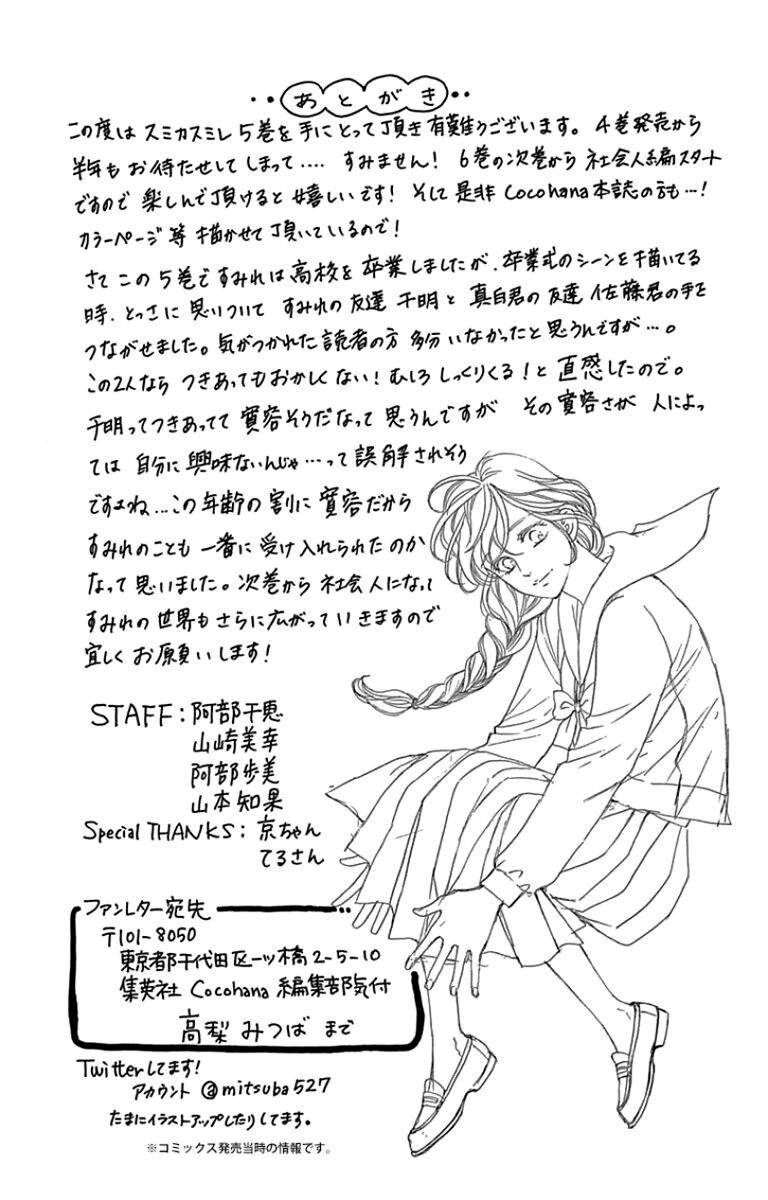 あとがき
この度は スミカスミレ 5巻を手にとって頂き有難うございます。 4巻発売から
半年も お待たせしてしまって.... すみません! 6巻の次巻から 社会人編スタート
ですので 楽しんで頂けると 嬉しいです! そして是非 Cocohana本誌の方も…!
カラーページ等 描かせて頂いているので!
さて この5巻ですみれは高校を 卒業しましたが、卒業式のシーンを描いてる
時、とっさに 思いついて すみれの友達 千明と 真白君の友達 佐藤君の手を
つながせました。気がつかれた読者の方 多分いなかったと思うんですが…。
この2人なら つきあってもおかしくない! むしろ しっくりくる! と 直感したので。
千明ってつきあってて 寛容そうだなって 思うんですが その寛容さが 人によっ
ては 自分に 興味ないんじゃ…って誤解されそう
ですよね…この年齢の割に 寛容だから
すみれのことも 一番に受け入れられたのか
なって思いました。次巻から 社会人になって
すみれの世界もさらに広がっていきますので
宜しく お願いします!
STAFF:阿部千恵
山崎美幸
阿部歩美
山本知果
Special THANKS: 京ちゃん
てるさん
ファンレター宛先
〒101-8050
東京都千代田区一ツ橋2-5-10
集英社 Cocohana 編集部気付
高梨みつば まで
Twitterしてます!
アカウント @mitsuba527
たまにイラストアップしたりしてます。
※コミックス発売当時の情報です。